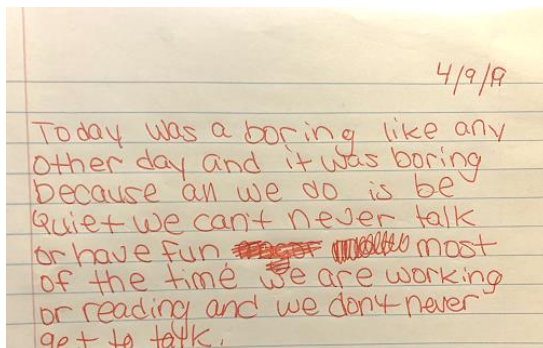 4/9/19
Today was a boring like any
other day and it was boring
because all we do is be
Quiet we can't never talk
or have fun. most
of the time we are working
or reading and we don't never
get to talk.